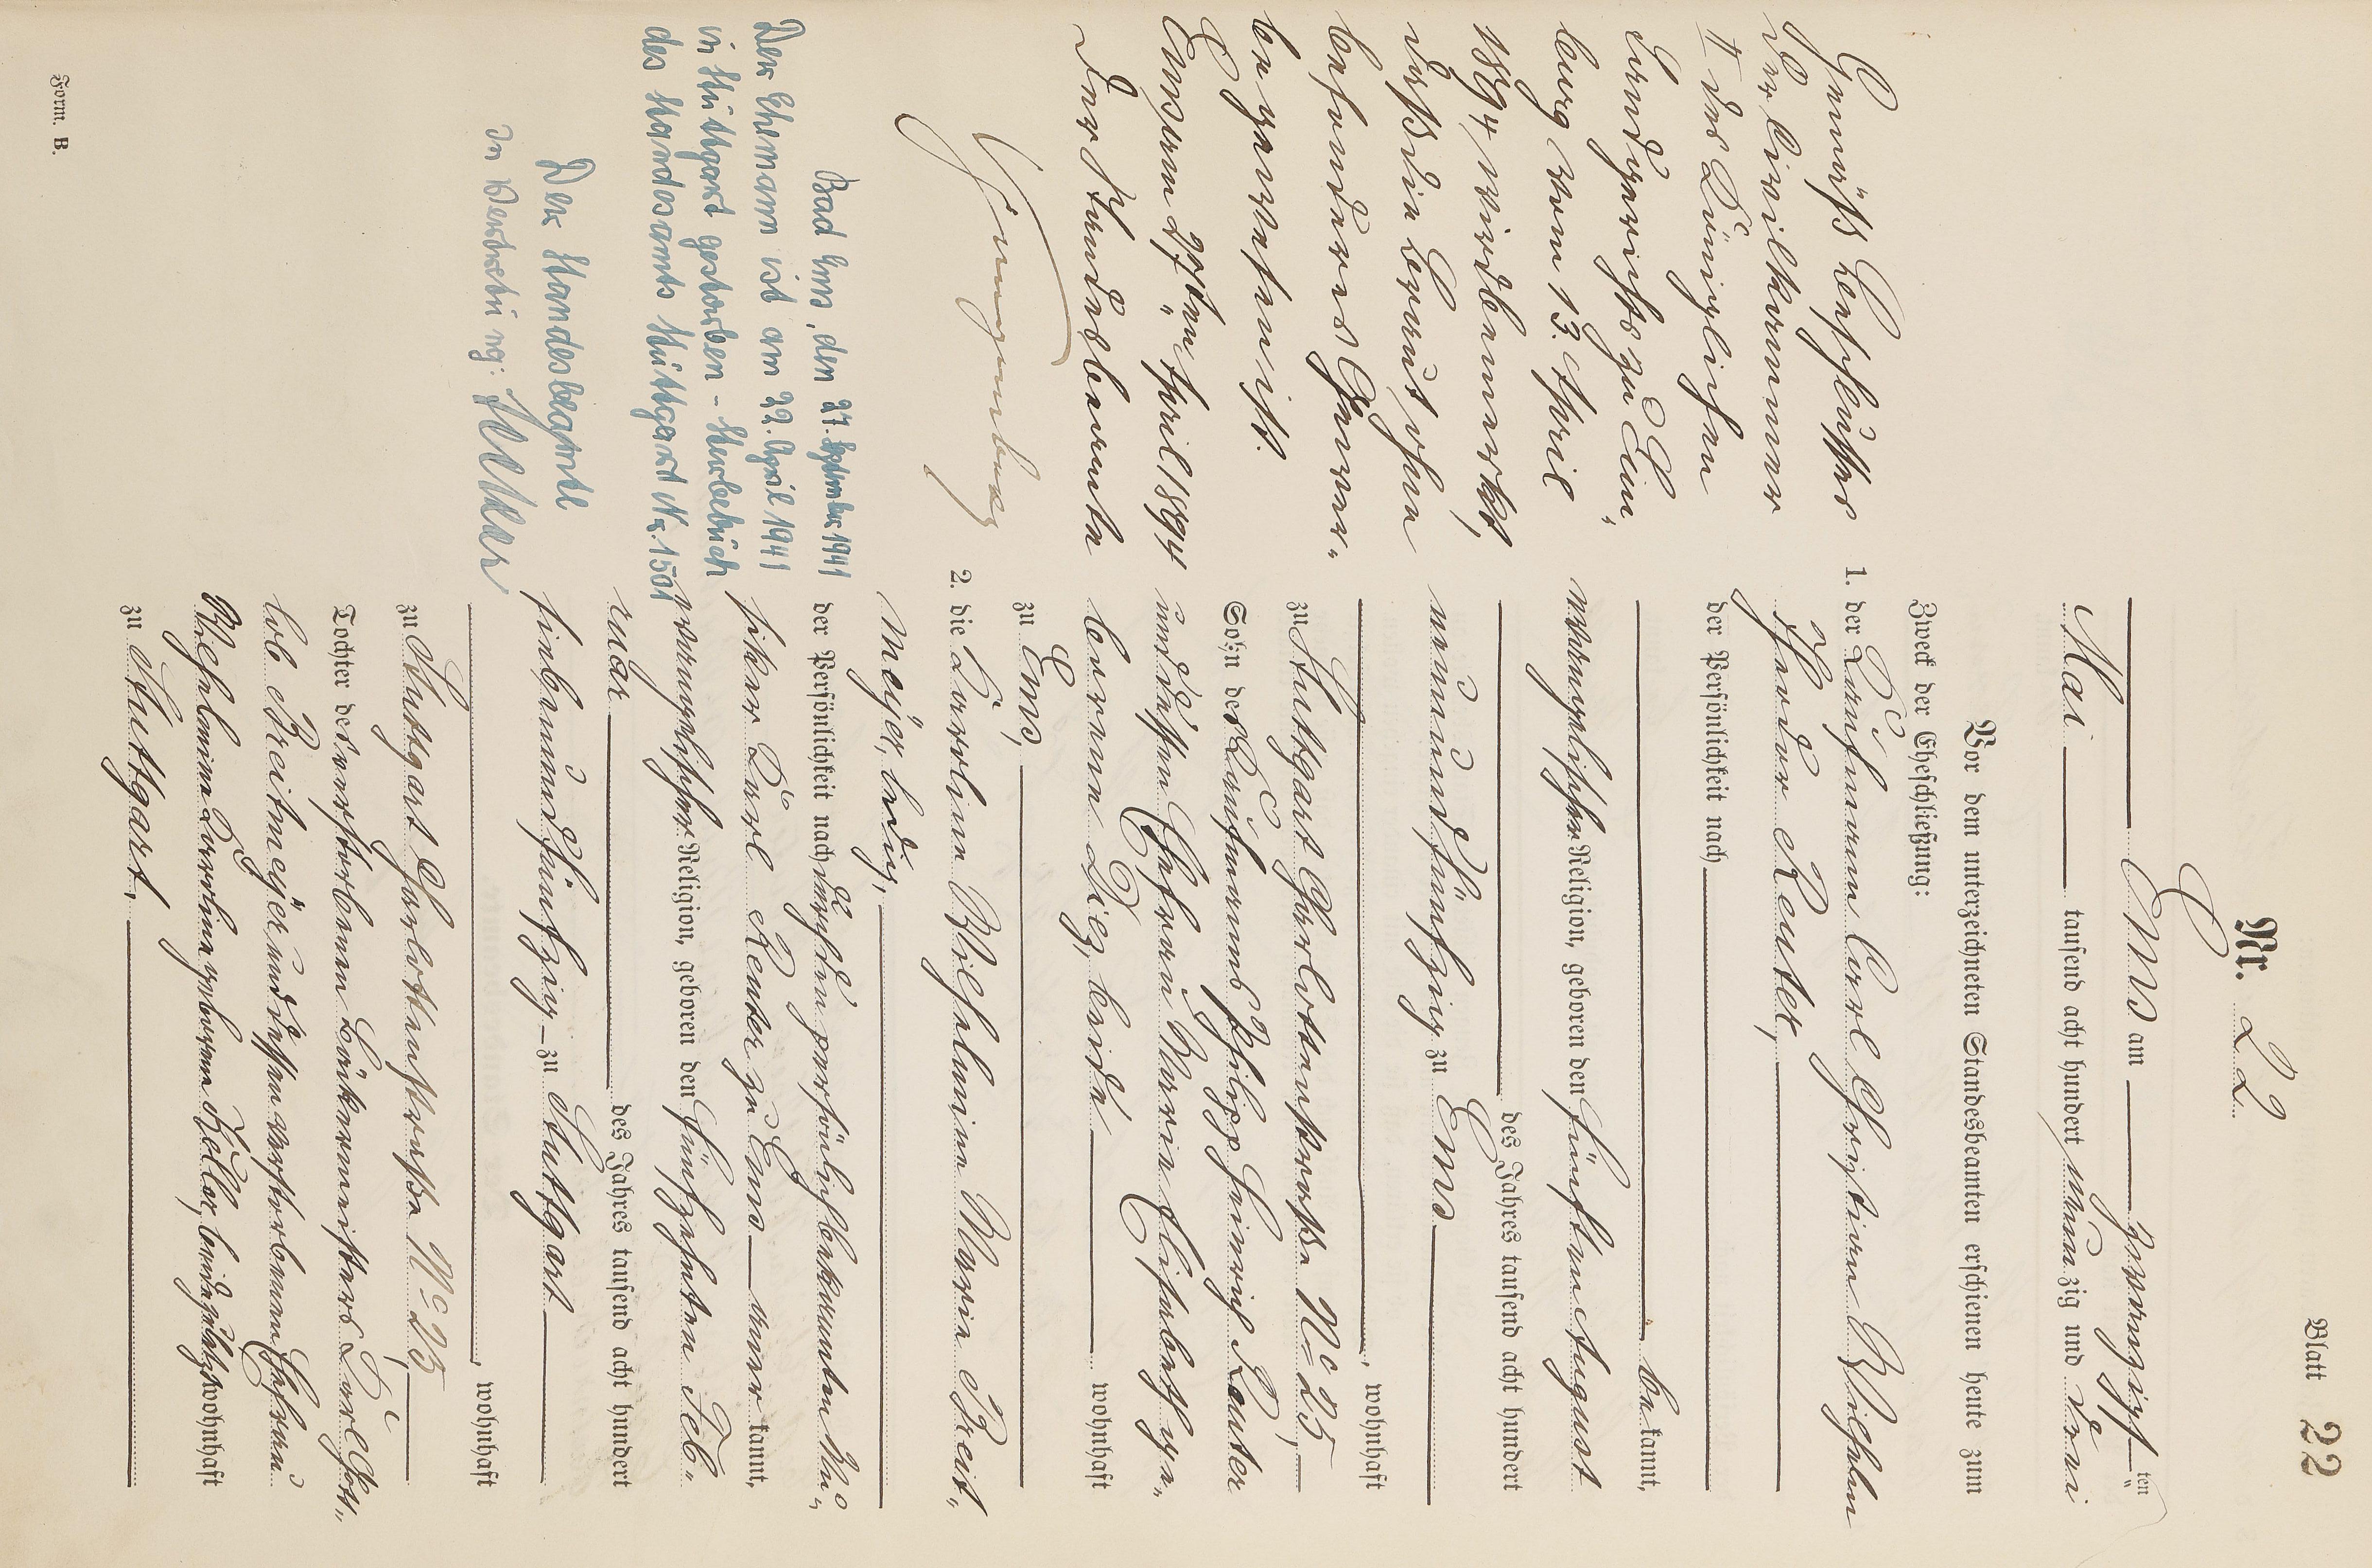 Blatt 22
Nr. 22
Ems am zwanzigsten
Mai tausend acht hundert neunzig und drei
Vor dem unterzeichneten Standesbeamten erschienen heute zum
Zweck der Eheschließung:
1. der Kaufmann Carl Christian Wilhelm
Reuter,
der Persönlichkeit nach
bekannt,
evangelischer Religion, geboren den fünften August
des Jahres tausend acht hundert
neunundfünfzig zu Ems
, wohnhaft
zu Stuttgart Charlottenstraße No 25,
Sohn des Kaufmanns Philipp Heinrich Reuter
und dessen Ehefrau Maria Elisabeth ge-
borene Diez, beide wohnhaft
zu Ems,
2. die Karoline Wilhelmine Maria Breit-
meijer, ledig,
der Persönlichkeit nach durch den persönlich bekannten Mu-
siker Karl Reuter zu Ems anerkannt,
evangelischer Religion, geboren den fünfzehnten Feb-
ruar des Jahres tausend acht hundert
siebenundfünfzig zu Stuttgart
, wohnhaft
zu Stuttgart Charlottenstraße No 25,
Tochter des verstorbenen Bäckermeisters Karl Gott-
lob Breitmeijer und dessen verstorbenen Ehefrau
Wilhelmine Karoline geborene Keller, beide zuletzt wohnhaft
zu Stuttgart.
Gemäß Beschlusses
der Civilkammer
II des Königlichen
Landgerichts zu Lim-
burg vom 13. April
1894 wird bemerkt,
daß die Braut ohne
besonderes Gewer-
be gewesen ist.
Ems, den 27ten April 1894
Der Standesbeamte
Bad Ems, den 27. September 1941
Der Ehemann ist am 22. April 1941
in Stuttgart gestorben - Sterbebuch
des Standesamts Stuttgart Nr. 1501
Der Standesbeamte
In Vertretung:
Form. B.